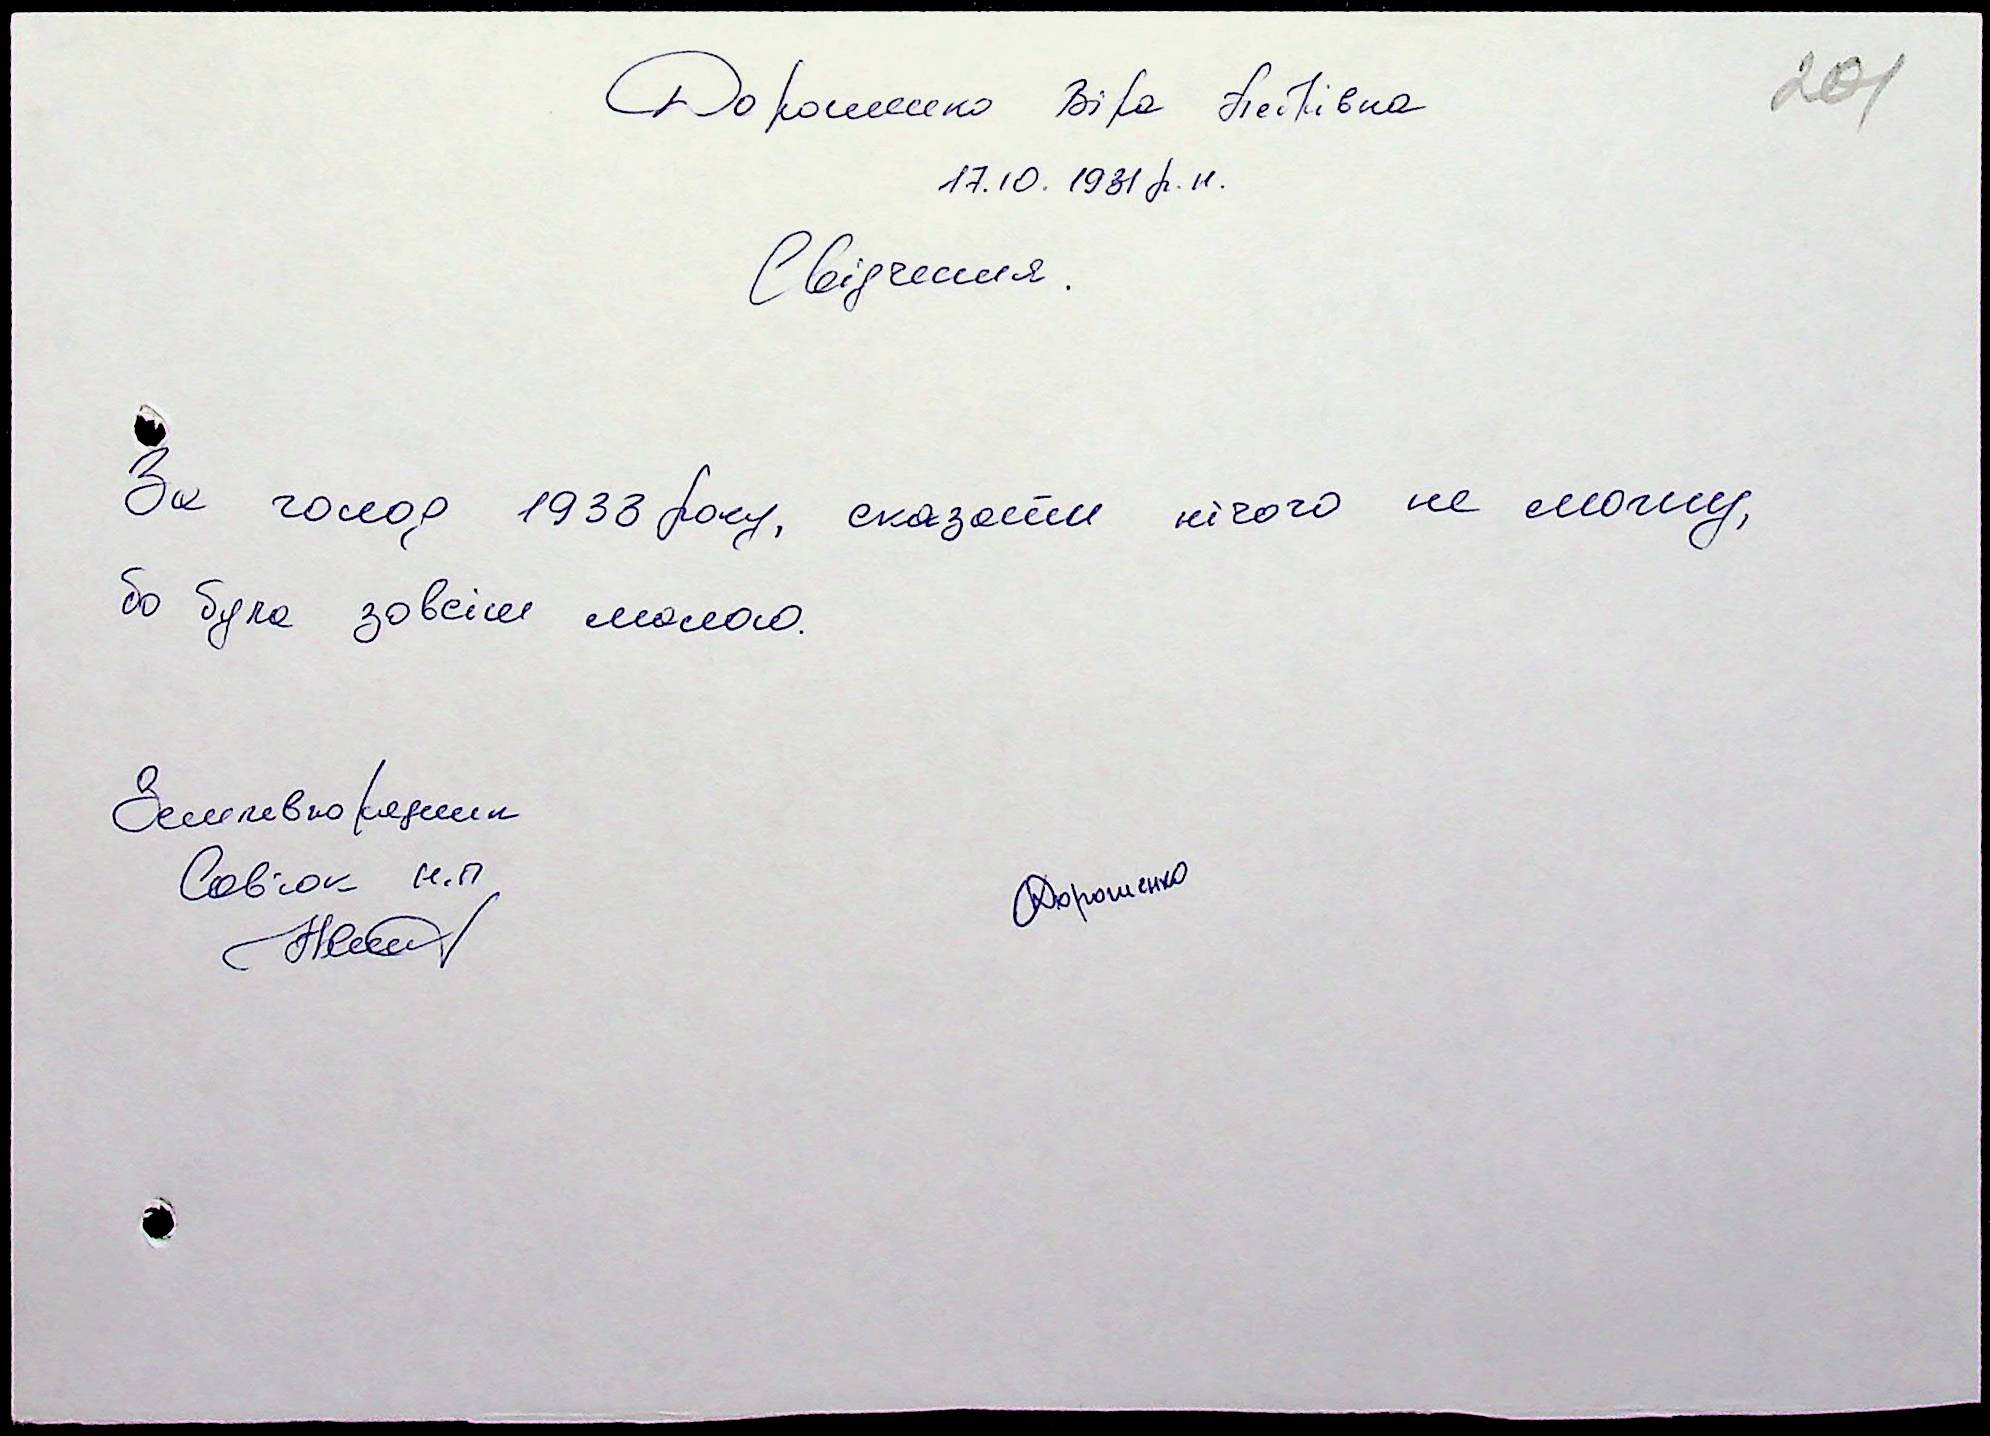 201
Дорошенко Віра Петрівна
17.10. 1931 р. н.
Свідчення.
За голод 1933 року, сказати нічого не можу,
бо була зовсім малою.
Землевпорядник
Савіюк Н.П
Дорошенко